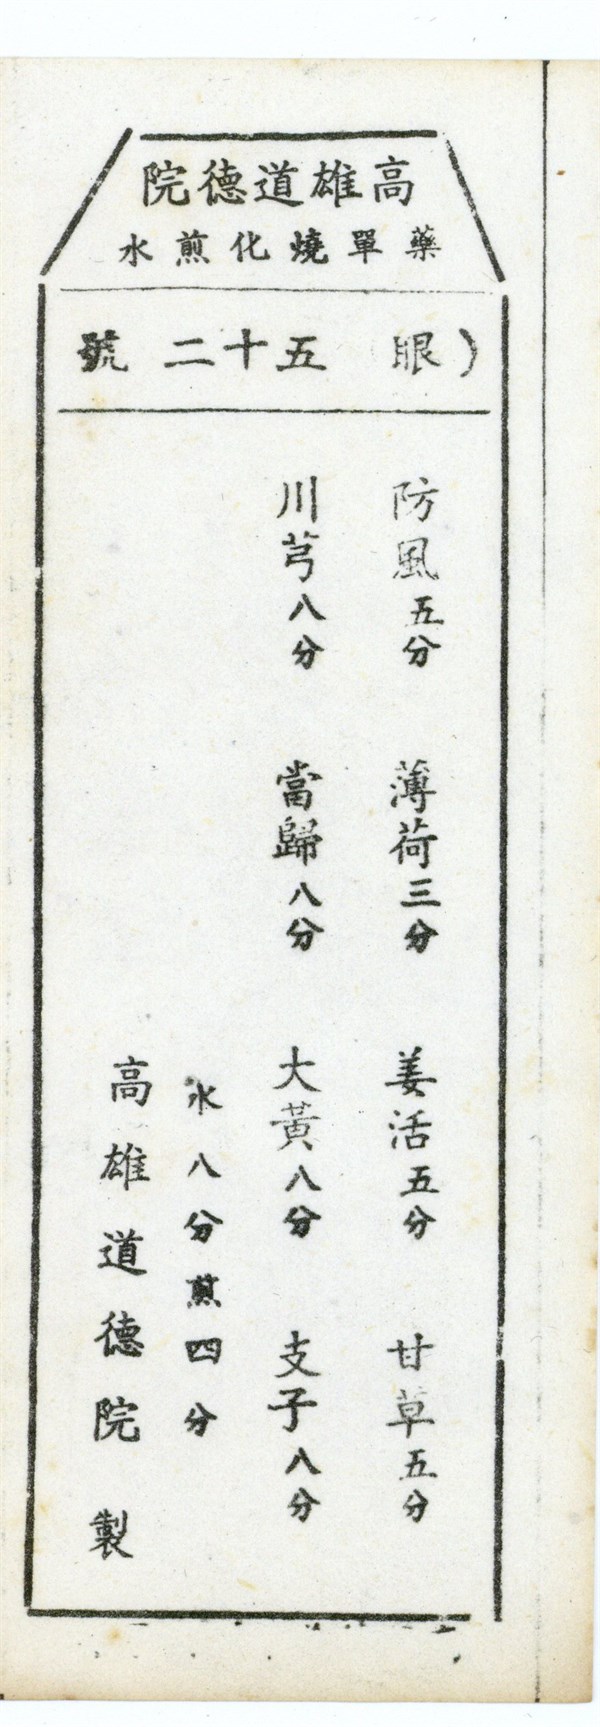 高雄道德院
藥單燒化煎水
)眼 五十二號
防風五分 薄荷三分 姜活五分 甘草五分
川芎八分 當歸八分 大黃八分 支子八分
水八分煎四分
高雄道德院製